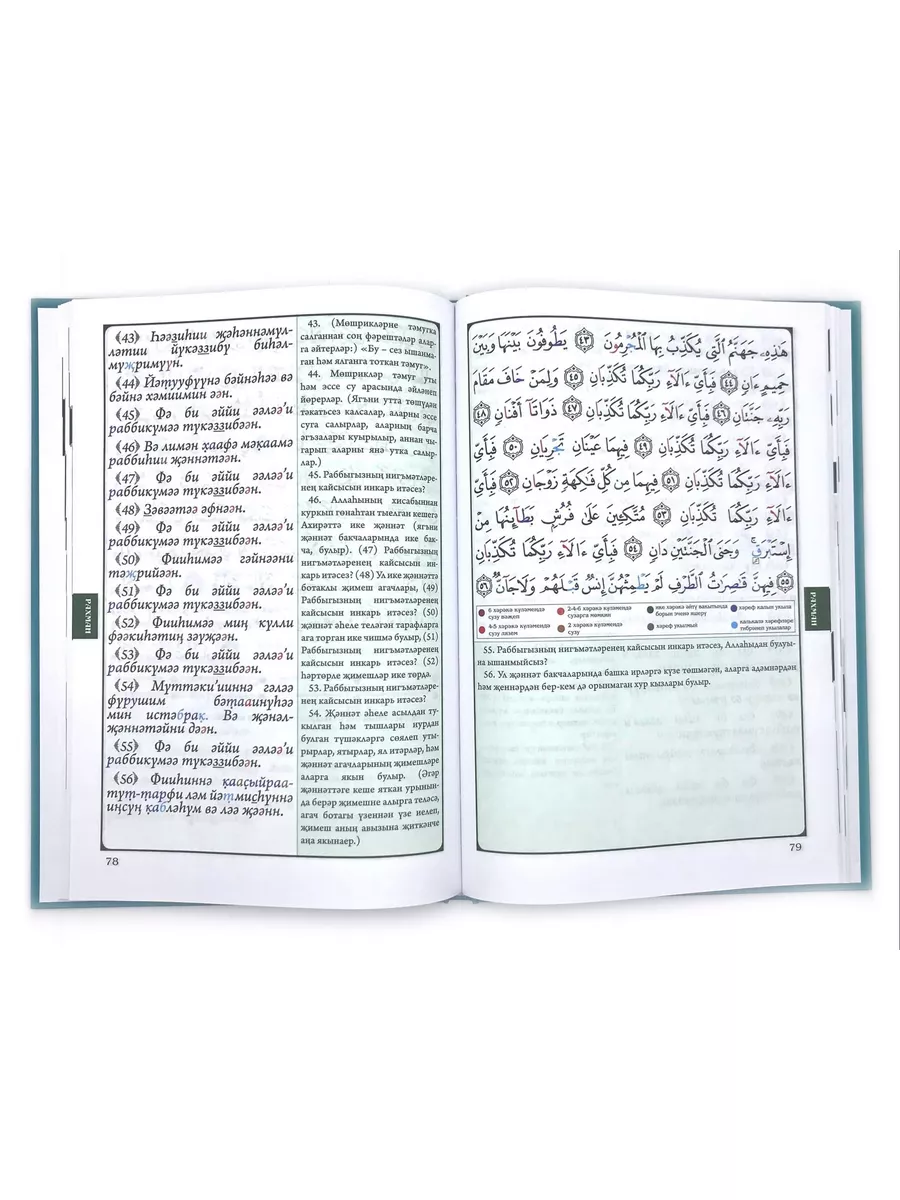 ﴾43﴿ Һәәҙиһии җәһәннәмүл-
ләтии йүкәҙҙибү биһәл-
мүҗримүүн.
﴾44﴿ Йәтууфүүнә бәйнәһәә вә
бәйнә хәмиимин әән.
﴾45﴿ Фә би әййи әәләә'и
раббикүмәә түкәҙҙибәән.
﴾46﴿ Вә лимән хаафә мәкаамә
раббиһии җәннәтәән.
﴾47﴿ Фә би әййи әәләә'и
раббикүмәә түкәҙҙибәән.
﴾48﴿ Зәвәәтәә әфнәән.
﴾49﴿ Фә би әййи әәләә'и
раббикүмәә түкәҙҙибәән.
﴾50﴿ Фииһимәә гәйнәәни
тәҗрийәән.
﴾51﴿ Фә би әййи әәләә'и
раббикүмәә түкәҙҙибәән.
﴾52﴿ Фииһимәә миң кулли
фәәкиһәтиң зәүҗәән.
﴾53﴿ Фә би әййи әәләә'и
раббикүмәә түкәҙҙибәән.
﴾54﴿ Мүттәки'шиннә гәләә
фүрушим бәтаашнүһәә
мин истәбрақ. Вә җәнәл-
җәннәтәйни дәән.
﴾55﴿ Фә би әййи әәләә'и
раббикүмәә түкәҙҙибәән.
﴾56﴿ Фииһиннә қааҫыйраа-
тут-тарфи ләм йәтмиҫһүннә
иңсуң қабләһүм вә ләә җәәнн.
43. (Мөшрикләрне тәмугка
салганнан соң фәрештәләр алар-
га әйтерләр:) «Бу – сез ышанма-
ган һәм ялганга тоткан тәмуг».
44. Мөшрикләр тәмуг уты
һәм эссе су арасында әйләнеп
йөрерләр. (Ягъни утта төшүдән
тәкатьсез калсалар, аларны эссе
суга салырлар, аларның барча
әгъзалары куырылыр, аннан чы-
гарып аларны янә утка салыр-
лар.)
45. Раббыгызның нигъмәтләре-
нең кайсысын инкарь итәсез?
46. Аллаһының хисабыннан
куркып гөнаһтан тыелган кешегә
Ахирәттә ике җәннәт (ягъни
җәннәт бакчаларында ике бак-
ча, булыр). (47) Раббыгызның
нигъмәтләренең кайсысын ин-
карь итәсез? (48) Ул ике җәннәттә
ботаклы җимеш агачлары, (49)
Раббыгызның нигъмәтләренең
кайсысын инкарь итәсез? (50)
җәннәт әһеле теләгән тарафларга
ага торган ике чишмә булыр, (51)
Раббыгызның нигъмәтләренең
кайсысын инкарь итәсез? (52)
һәртөрле җимешләр ике төрдә.
53. Раббыгызның нигъмәтләре-
нең кайсысын инкарь итәсез?
54. Җәннәт әһеле асылдан ту-
кылган һәм тышлары нурдан
булган түшәкләргә сөялеп уты-
рырлар, ятырлар, ял итәрләр, һәм
җәннәт агачларының җимешләре
аларга якын булыр. (Әгәр
җәннәттәге кеше яткан урынын-
да берәр җимешне алырга теләсә,
агач ботагы үзеннән үзе иелеп,
җимеш аның авызына җиткәнче
аңа якынаер.)
РАХМАН
78
هَٰذِهِۦ جَهَنَّمُ ٱلَّتِي يُكَذِّبُ بِهَا ٱلْمُجْرِمُونَ ٤٣ يَطُوفُونَ بَيْنَهَا وَبَيْنَ
حَمِيمٍ ءَانٍ ٤٤ فَبِأَيِّ ءَالَآءِ رَبِّكُمَا تُكَذِّبَانِ ٤٥ وَلِمَنْ خَافَ مَقَامَ
رَبِّهِۦ جَنَّتَانِ ٤٦ فَبِأَيِّ ءَالَآءِ رَبِّكُمَا تُكَذِّبَانِ ٤٧ ذَوَاتَآ أَفْنَانٍ ٤٨
فَبِأَيِّ ءَالَآءِ رَبِّكُمَا تُكَذِّبَانِ ٤٩ فِيهِمَا عَيْنَانِ تَجْرِيَانِ ٥٠ فَبِأَيِّ
ءَالَآءِ رَبِّكُمَا تُكَذِّبَانِ ٥١ فِيهِمَا مِن كُلِّ فَٰكِهَةٍ زَوْجَانِ ٥٢ فَبِأَيِّ
ءَالَآءِ رَبِّكُمَا تُكَذِّبَانِ ٥٣ مُتَّكِـِٔينَ عَلَىٰ فُرُشٍۭ بَطَآئِنُهَا مِنْ
إِسْتَبْرَقٍ ۚ وَجَنَى ٱلْجَنَّتَيْنِ دَانٍ ٥٤ فَبِأَيِّ ءَالَآءِ رَبِّكُمَا تُكَذِّبَانِ
٥٥ فِيهِنَّ قَٰصِرَٰتُ ٱلطَّرْفِ لَمْ يَطْمِثْهُنَّ إِنسٌ قَبْلَهُمْ وَلَا جَآنٌّ ٥٦
6 хәрәкә күләмендә сузу важеп
2-4-6 хәрәкә күләмендә сузарга мөмкин
ике хәрәкә әйтү вакытында борын эченә яшерү
хәреф калын укыла
4-5 хәрәкә күләмендә сузу лязем
2 хәрәкә күләмендә сузу
хәреф укылмый
калькалә хәрефләре тибрәнеп укылалар
55. Раббыгызның нигъмәтләренең кайсысын инкарь итәсез, Аллаһыдан булуы-
на ышанмыйсыз?
56. Ул җәннәт бакчаларында башка ирләргә күзе төшмәгән, аларга адәмнәрдән
һәм җеннәрдән бер-кем дә орынмаган хур кызлары булыр.
РАХМАН
79